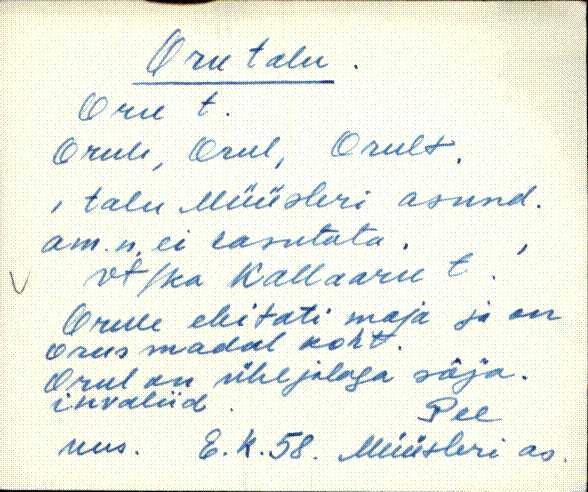 Oru talu.
Oru t.
Orule, Orul, Orult.
, talu Müüsleri asund.
am.n. ei kasutata.
vt/ka Kallaaru t.
Orule ehitati maja ja on
orus madal koht.
Orul on ühejalaga sõja.
invaliid.
Pee
uus. E.K.58. Müüsleri as.